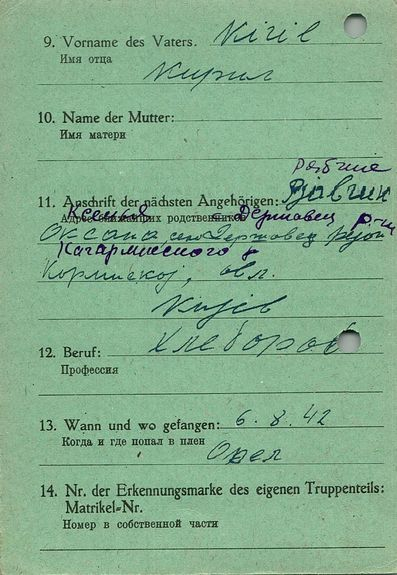 9. Vorname des Vaters. Kiril
Имя отца
Кирил
10. Name der Mutter:
Имя матери
11. Anschrift der nächsten Angehörigen:
Адрес ближайших родственников
Ксения Державец р-н
Оксана, село Державец
Кагарлыкского
обл.
Kijiv
12. Beruf: Хлебороб
Профессия
13. Wann und wo gefangen: 6. 8. 42
Когда и где попал в плен
Орел
14. Nr. der Erkennungsmarke des eigenen Truppenteils:
Matrikel-Nr.
Номер в собственной части